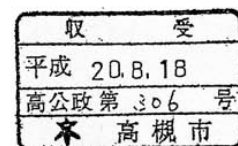 収 受
平成 20.8.18
高公政第 306 号
高槻市